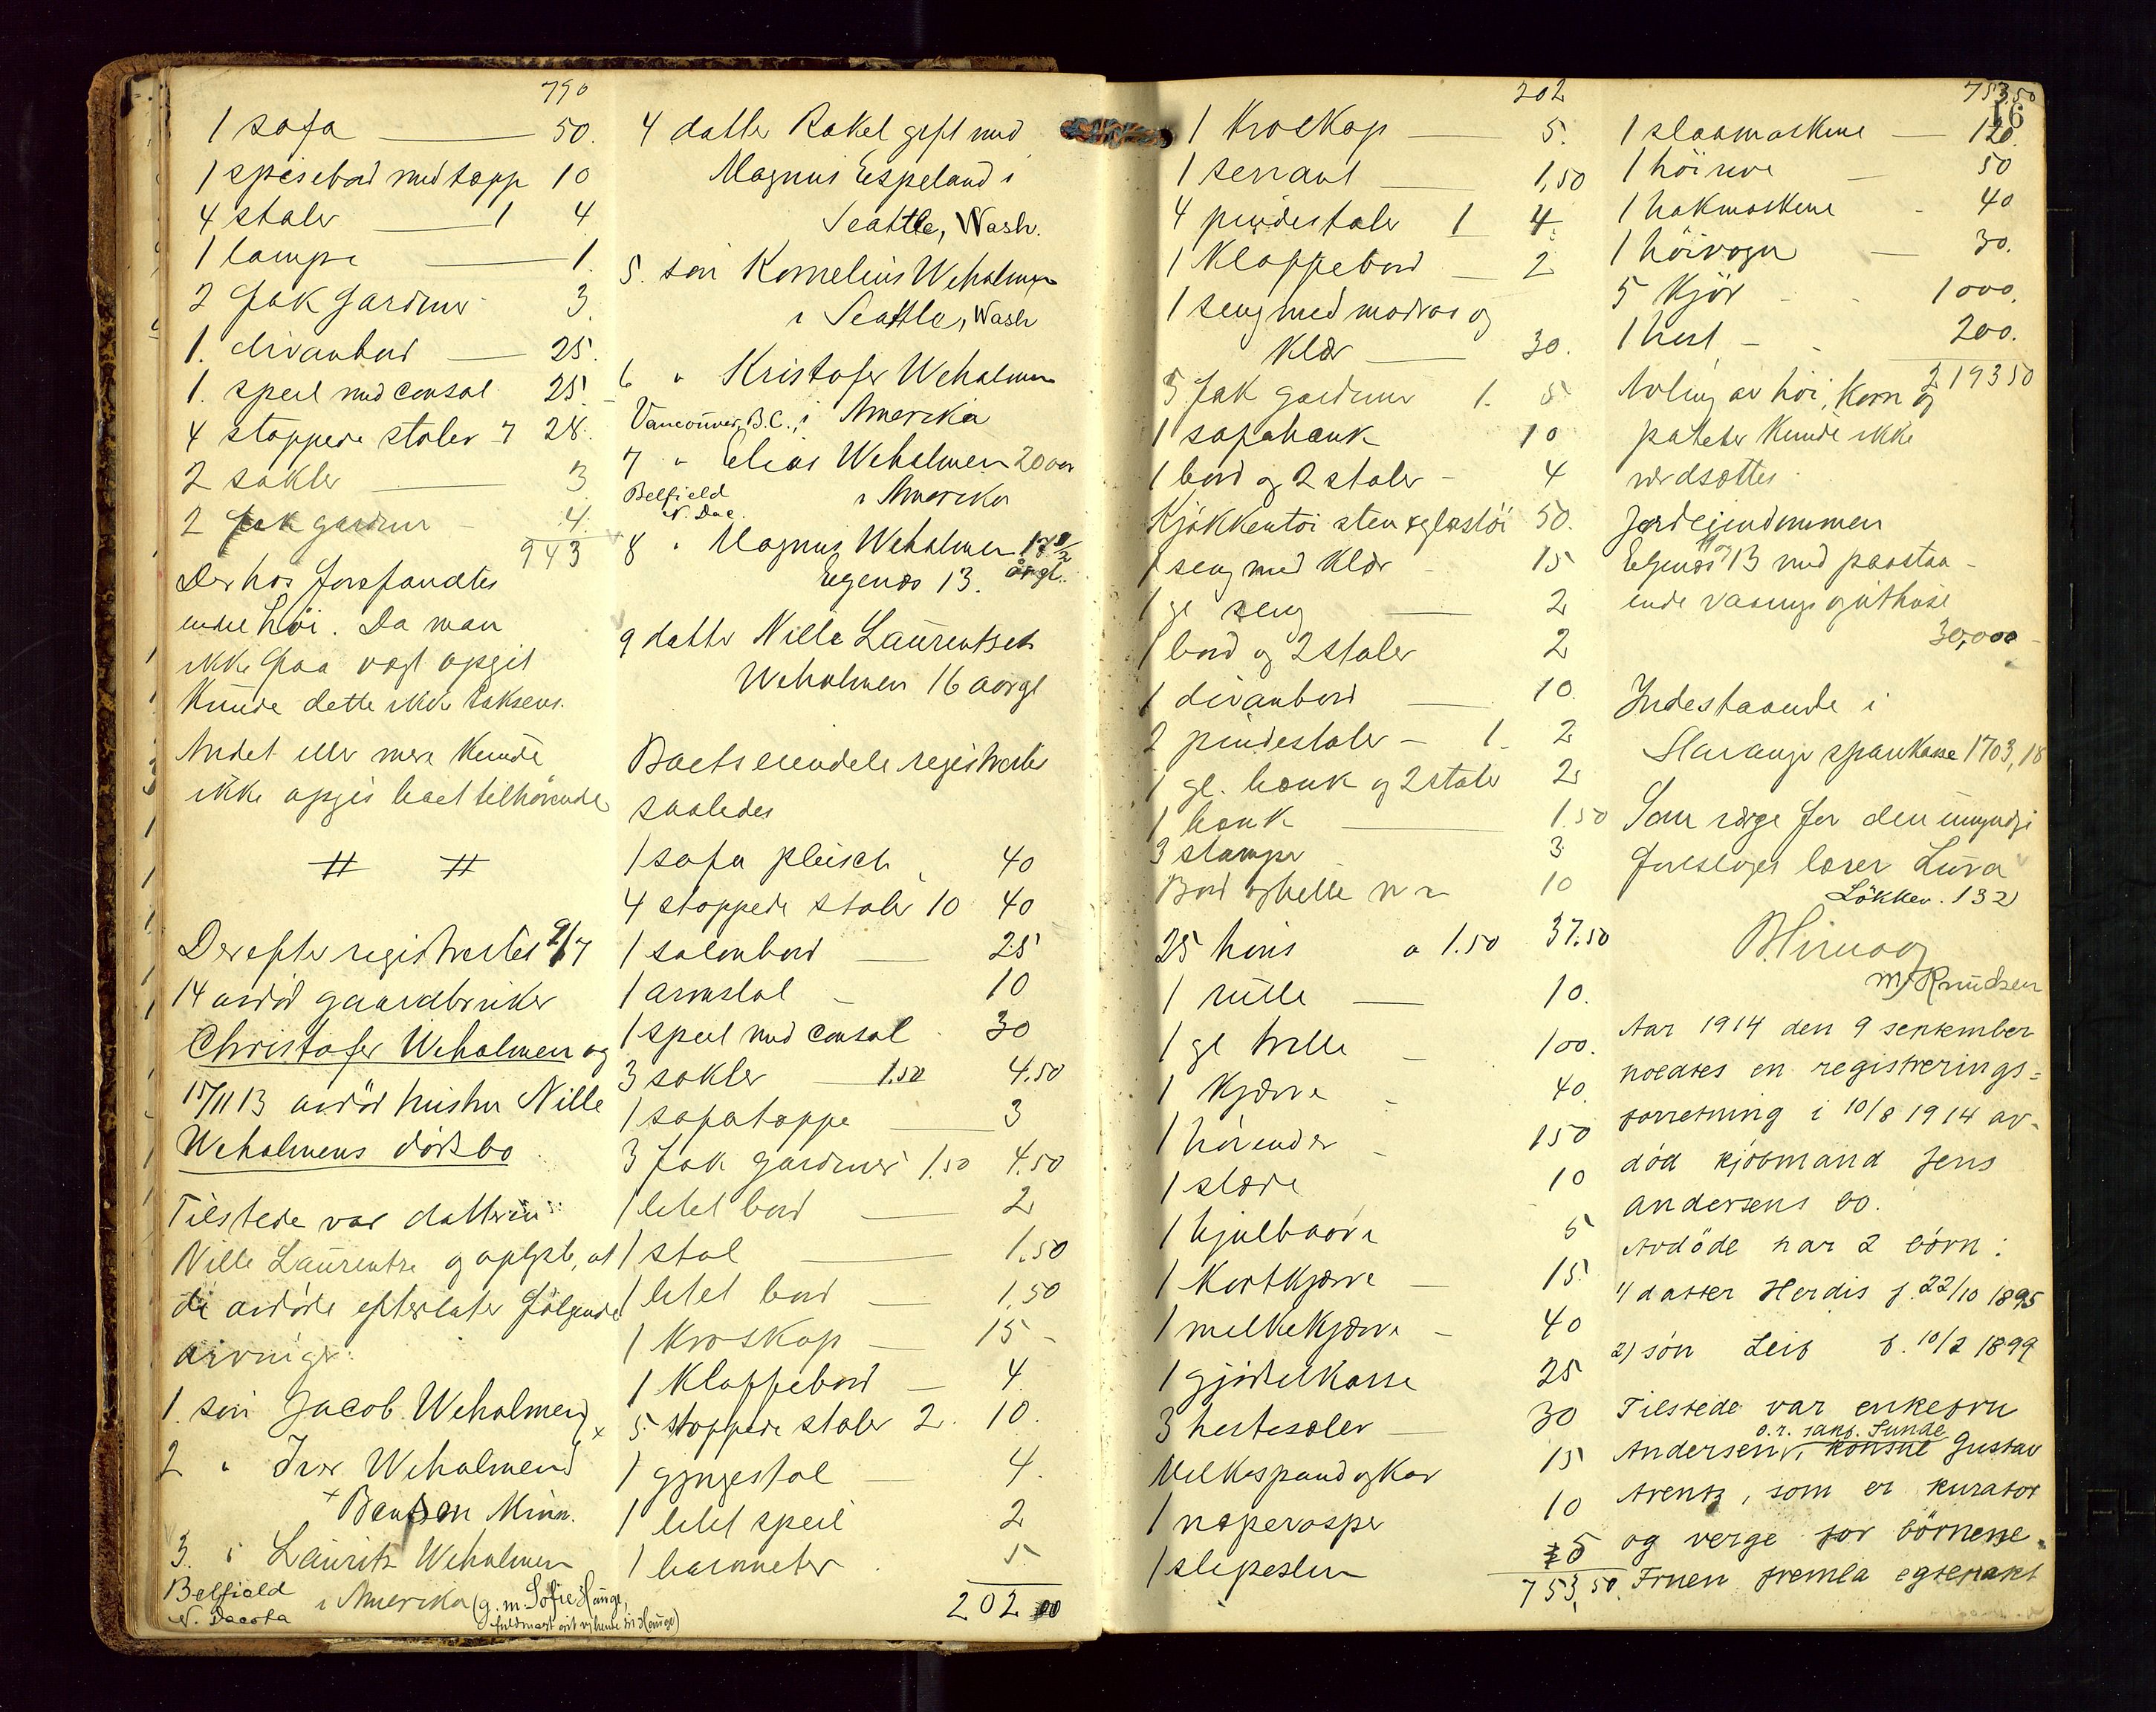 790
1 sofa 50.
1 spisebord med tæpp 10
4 stoler 1 4
1 lampe 1.
2 fak gardiner 3.
1. divanbord 25.
1. speil med consol 25.
4 stoppede stoler 7 28.
2 sokler 3
2 fak gardiner 4.
943
Derhos forefandtes
endel høi. Da man
ikke paa vægt opgit
kunde dette ikke takseres.
Andet eller mere kunde
ikke opgis boet tilhørende
Derefter registrertes 9/7
14 avdød gaardbruker
Christofer Weholmen og
15/11 13 avdød hustru Nille
Weholmens dødsbo.
Tilstede var datteren
Nille Laurentse og oplyste, at
de avdøde efterlater følgende
arvinger:
1. søn Jacob Weholmen x
2 " Iver Weholmen
x Benson Minn.
3. " Lauritz Weholmen
Belfield i Amerika (g. m. Sofie Hauge,
N. Dacota
4 datter Rakel gift med
Magnus Espeland i
Seattle, Wash.
5. søn Kornelius Weholmen
i Seattle, Wash
6 " Kristofer Weholmen
Vancouver, B.C., i Amerika
7 " Elias Weholmen 20 aar
Belfield i Amerika
N. Dac.
8 " Magnus Weholmen 17 1/2
Egenæs 13. årgl.
9 datter Nille Laurentse
Weholmen 16 aargl
Boets eiendele registrertes
saaledes
1 sofa pleisch 40
4 stoppede stoler 10 40
1 salonbord 25
1 armstol 10
1 speil med consol 30
3 sokler 1.50 4.50
1 sofatæppe 3
3 fak gardiner 1.50 4.50
1 litet bord 2
1 stol 1.50
1 litet bord 1.50
1 kroskap 15
1 klappebord 4
5 stoppede stoler 2. 10.
1 gyngestol 4.
1 litet speil 2
1 barometer 5
202 00
202
1 kroskap 5.
1 servant 1,50
4 pindestoler 1 4.
1 klappebord 2
1 seng med madras og
klær 30.
5 fak gardiner 1. 5
1 sofabænk 10
1 bord og 2 stoler 4
Kjøkkentøi sten & glastøi 50.
1 seng med klær 15
1 gl seng 2
1 bord og 2 stoler 2
1 divanbord 10.
2 pindestoler 1. 2
1 gl. bænk og 2 stoler 2
1 bænk 1.50
3 stamper 3
10
25 høns a 1.50 37.50
1 rulle 10.
1 gl trille 100.
1 kjærre 40.
1 høivender 150
1 slæde 10
1 hjulbaare 5
1 kortkjærre 15
1 melkekjærre 40
1 gjødselkasse 25
3 hestesæler 30
Melkespand og kar 15
1 10
1 slipesten 5
753,50.
753,50
16
1 slaamaskine 120.
1 høirive 50
1 hakmaskine 40
1 høivogn 30.
5 kjør 1000.
1 hest 200.
2193 50
Avling av høi, korn og
poteter kunde ikke
værdsættes.
Jordeiendommen
Egenæs 13 med paastaa-
ende vaanings og uthuse
30,000
Indestaaende i
Stavanger sparekasse 1703,18
Som verge for den umyndige
foresloges lærer Lura
Løkkev. 132
M. Knudsen
Aar 1914 den 9 september
holdtes en registrerings-
forretning i 10/8 1914 av-
død kjøbmand Jens
Andersens bo.
Avdøde har 2 børn:
1) datter Herdis f. 22/10 1895
2) søn Leif f. 10/2 1899
Tilstede var enkefru
o.r. sakf. Sunde
Andersen, konsul Gustav
Arentz, som er kurator
og verge for børnene.
Fruen fremla egtepakt